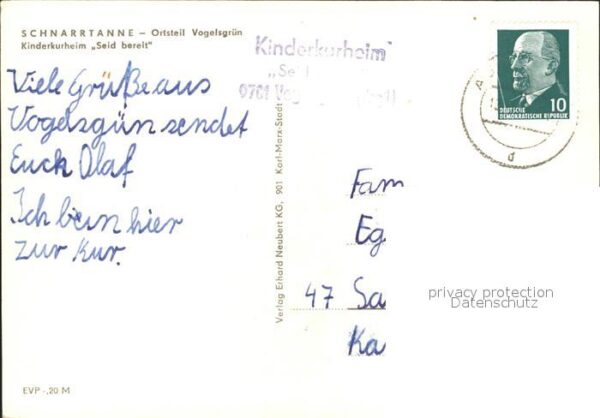 SCHNARRTANNE – Ortsteil Vogelsgrün
Kinderkurheim „Seid bereit"
Viele Grüße aus
Vogelsgün sendet
Euch Olaf
Ich bein hier
zur Kur.
EVP -,20 M
Verlag Erhard Neubert KG, 901 Karl-Marx-Stadt
Kinderkurheim
10
DEUTSCHE
DEMOKRATISCHE REPUBLIK
Fam
Eg
47 Sa
Ka
privacy protection
Datenschutz